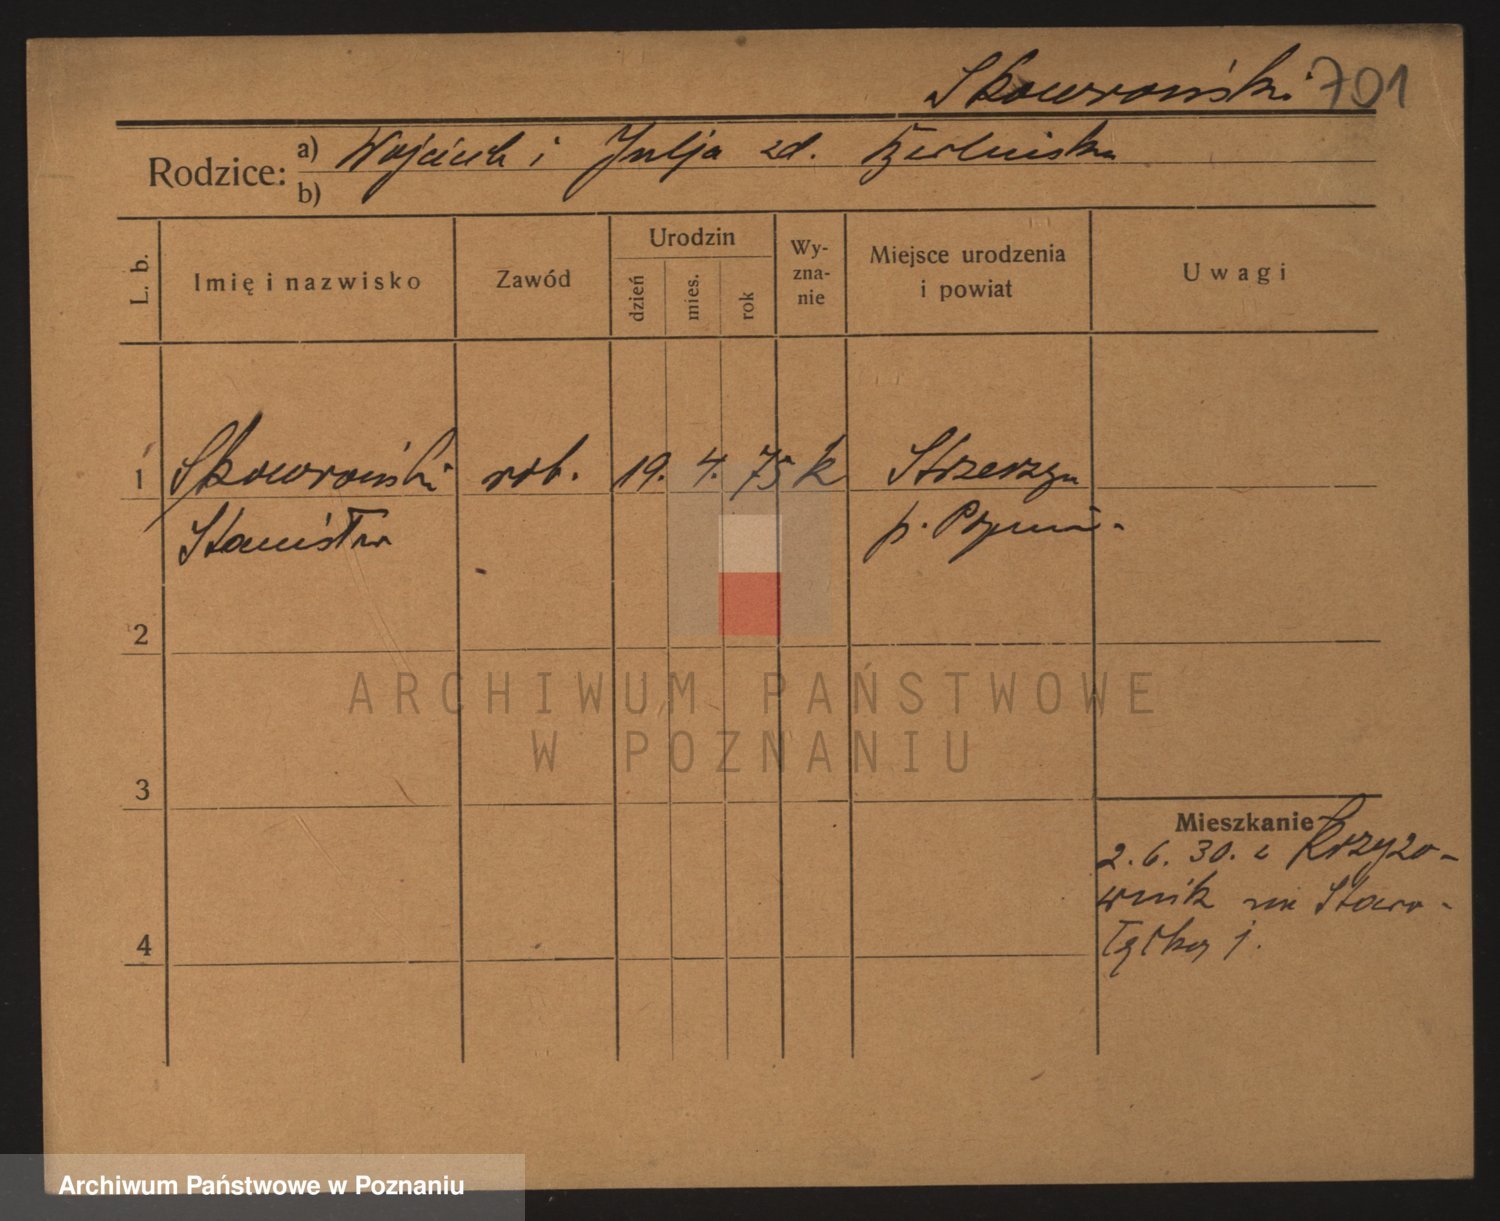 Skowroński 701
Rodzice: a) Wojciech i Julja zd.
b)
L. b.
Imię i nazwisko
Zawód
Urodzin
dzień
mies.
rok
Wy-
zna-
nie
Miejsce urodzenia
i powiat
Uwagi
1 Skowroński rob. 19. 4. 75 k Strzeszyn
Stanisław p.
2
ARCHIWUM PAŃSTWOWE
W POZNANIU
3
Mieszkanie
2. 6. 30. z Krzyżo-
wnik na Staro-
łęcką 1.
4
Archiwum Państwowe w Poznaniu